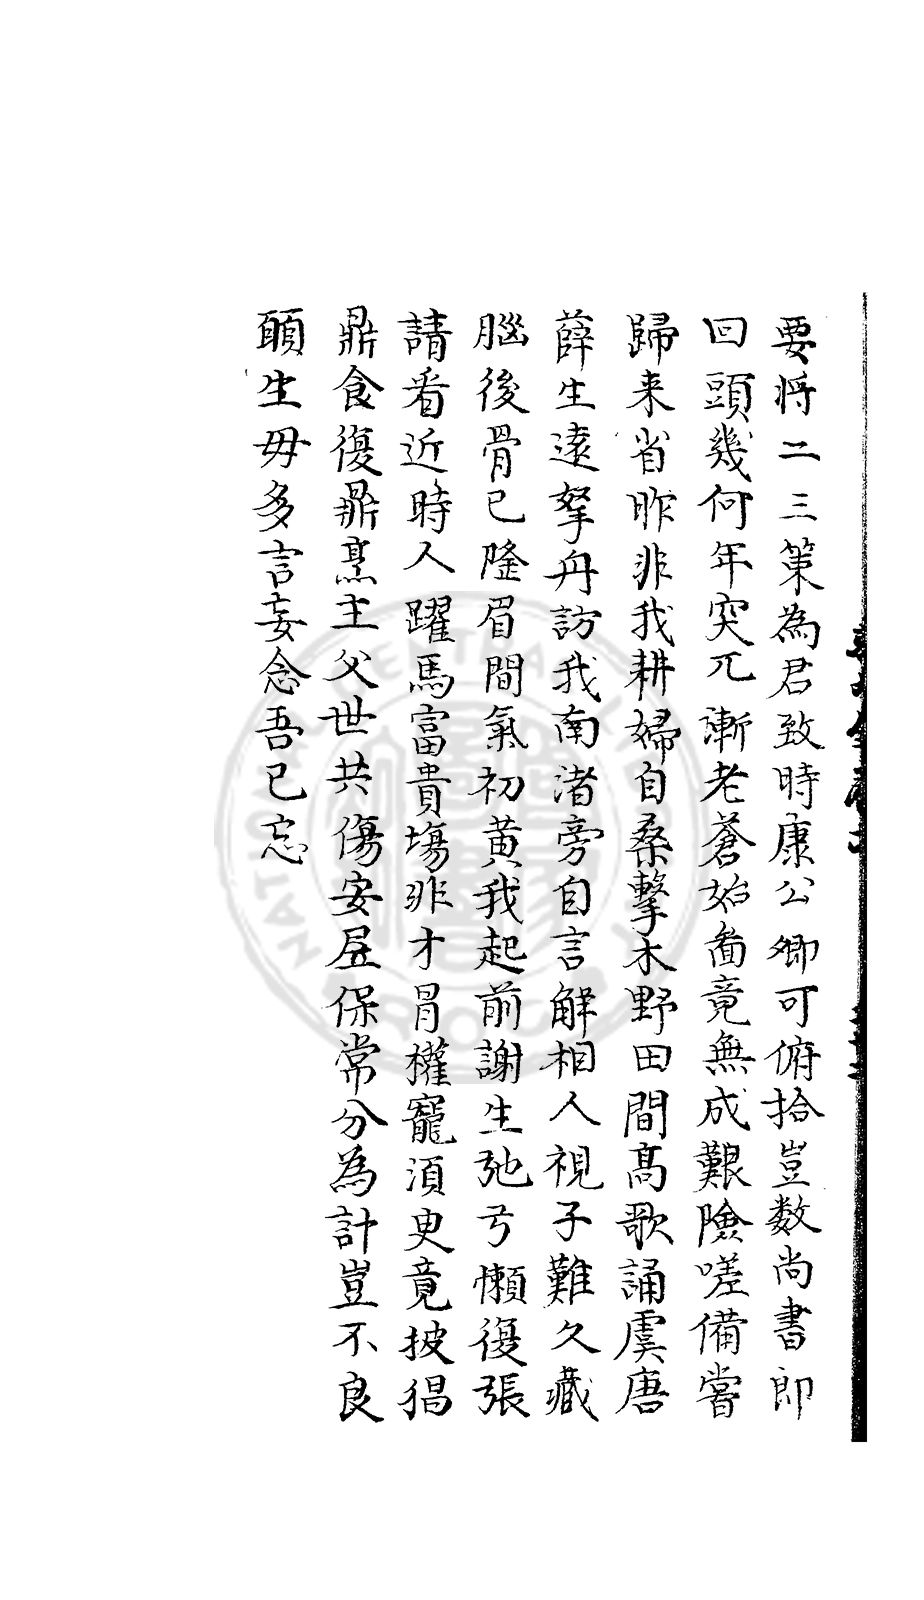 要将二三策為君致時康公卿可俯拾豈数尚書郎
回頭幾何年突兀漸老蒼始啚竟無成艱險嗟備嘗
歸来省昨非我耕婦自桑擊木野田間髙歌誦虞唐
薛生遠拏舟訪我南渚旁自言解相人視子難久藏
腦後骨已隆眉間氣初黄我起前謝生弛弓懶復張
請看近時人躍馬富貴塲非才冐權寵湏臾竟披猖
鼎食復鼎烹主父世共傷安居保常分為計豈不良
頤生毋多言妄念吾已忘